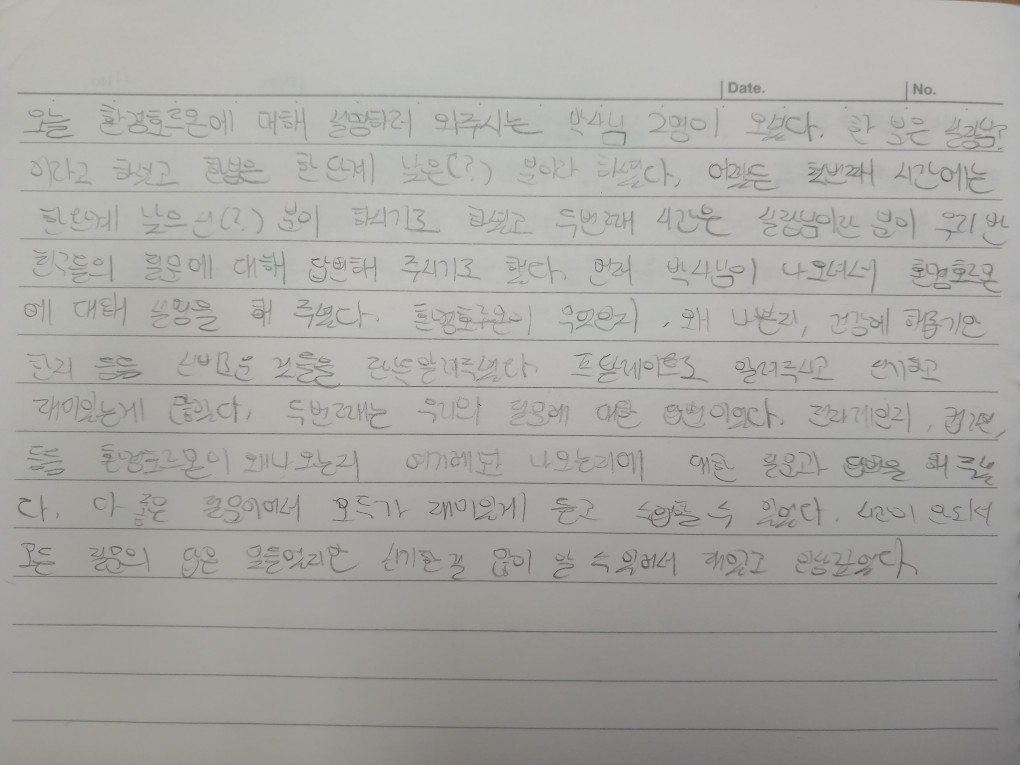 Date. No.
오늘 환경호르몬에 대해 설명하러 와주시는 박사님 2명이 오셨다. 한 분은 실장님?
이라고 하셨고 한분은 한단계 낮은(?) 분이라 하셨다. 어쨌든 첫번째 시간에는
한단계 낮으신(?) 분이 하시기로 하셨고 두번째 시간은 실장님이란 분이 우리 반
친구들의 질문에 대해 답변해 주시기로 했다. 먼저 박사님이 나오셔서 환경호르몬
에 대해 설명을 해 주셨다. 환경호르몬이 무엇인지, 왜 나쁜지, 건강에 해롭기만
한지 등등 신비로운 것들을 알려주셨다. 프탈레이트도 알려주시고 신기하고
재미있는게 많았다. 두번째는 우리의 질문에 대한 답변이었다.
등등 환경호르몬이 왜나오는지 어떻게 나오는지에 대한 질문과 답변을 해 주셨
다. 다 좋은 질문이어서 모두가 재미있게 듣고 수업할 수 있었다. 시간이 안되서
모든 질문의 답은 못들었지만 신기한걸 많이 알 수 있어서 재밌고